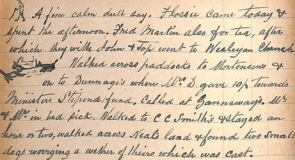 A fine calm dull day. Flossie came today &
spent the afternoon. Fred Martin also for tea, after
which they with John & Top went to Wesleyan Church
Walked across paddocks to Mortensons &
on to Dunnage's where Mrs D. gave 10/- towards
Ministers Stipend fund, Called at Gannaways. Mr
& Mrs in bed sick. Walked to C C Smith's & stayed an
hour or two, walked across Neals land & found two small
dogs worrying a wether of theirs which was cast.